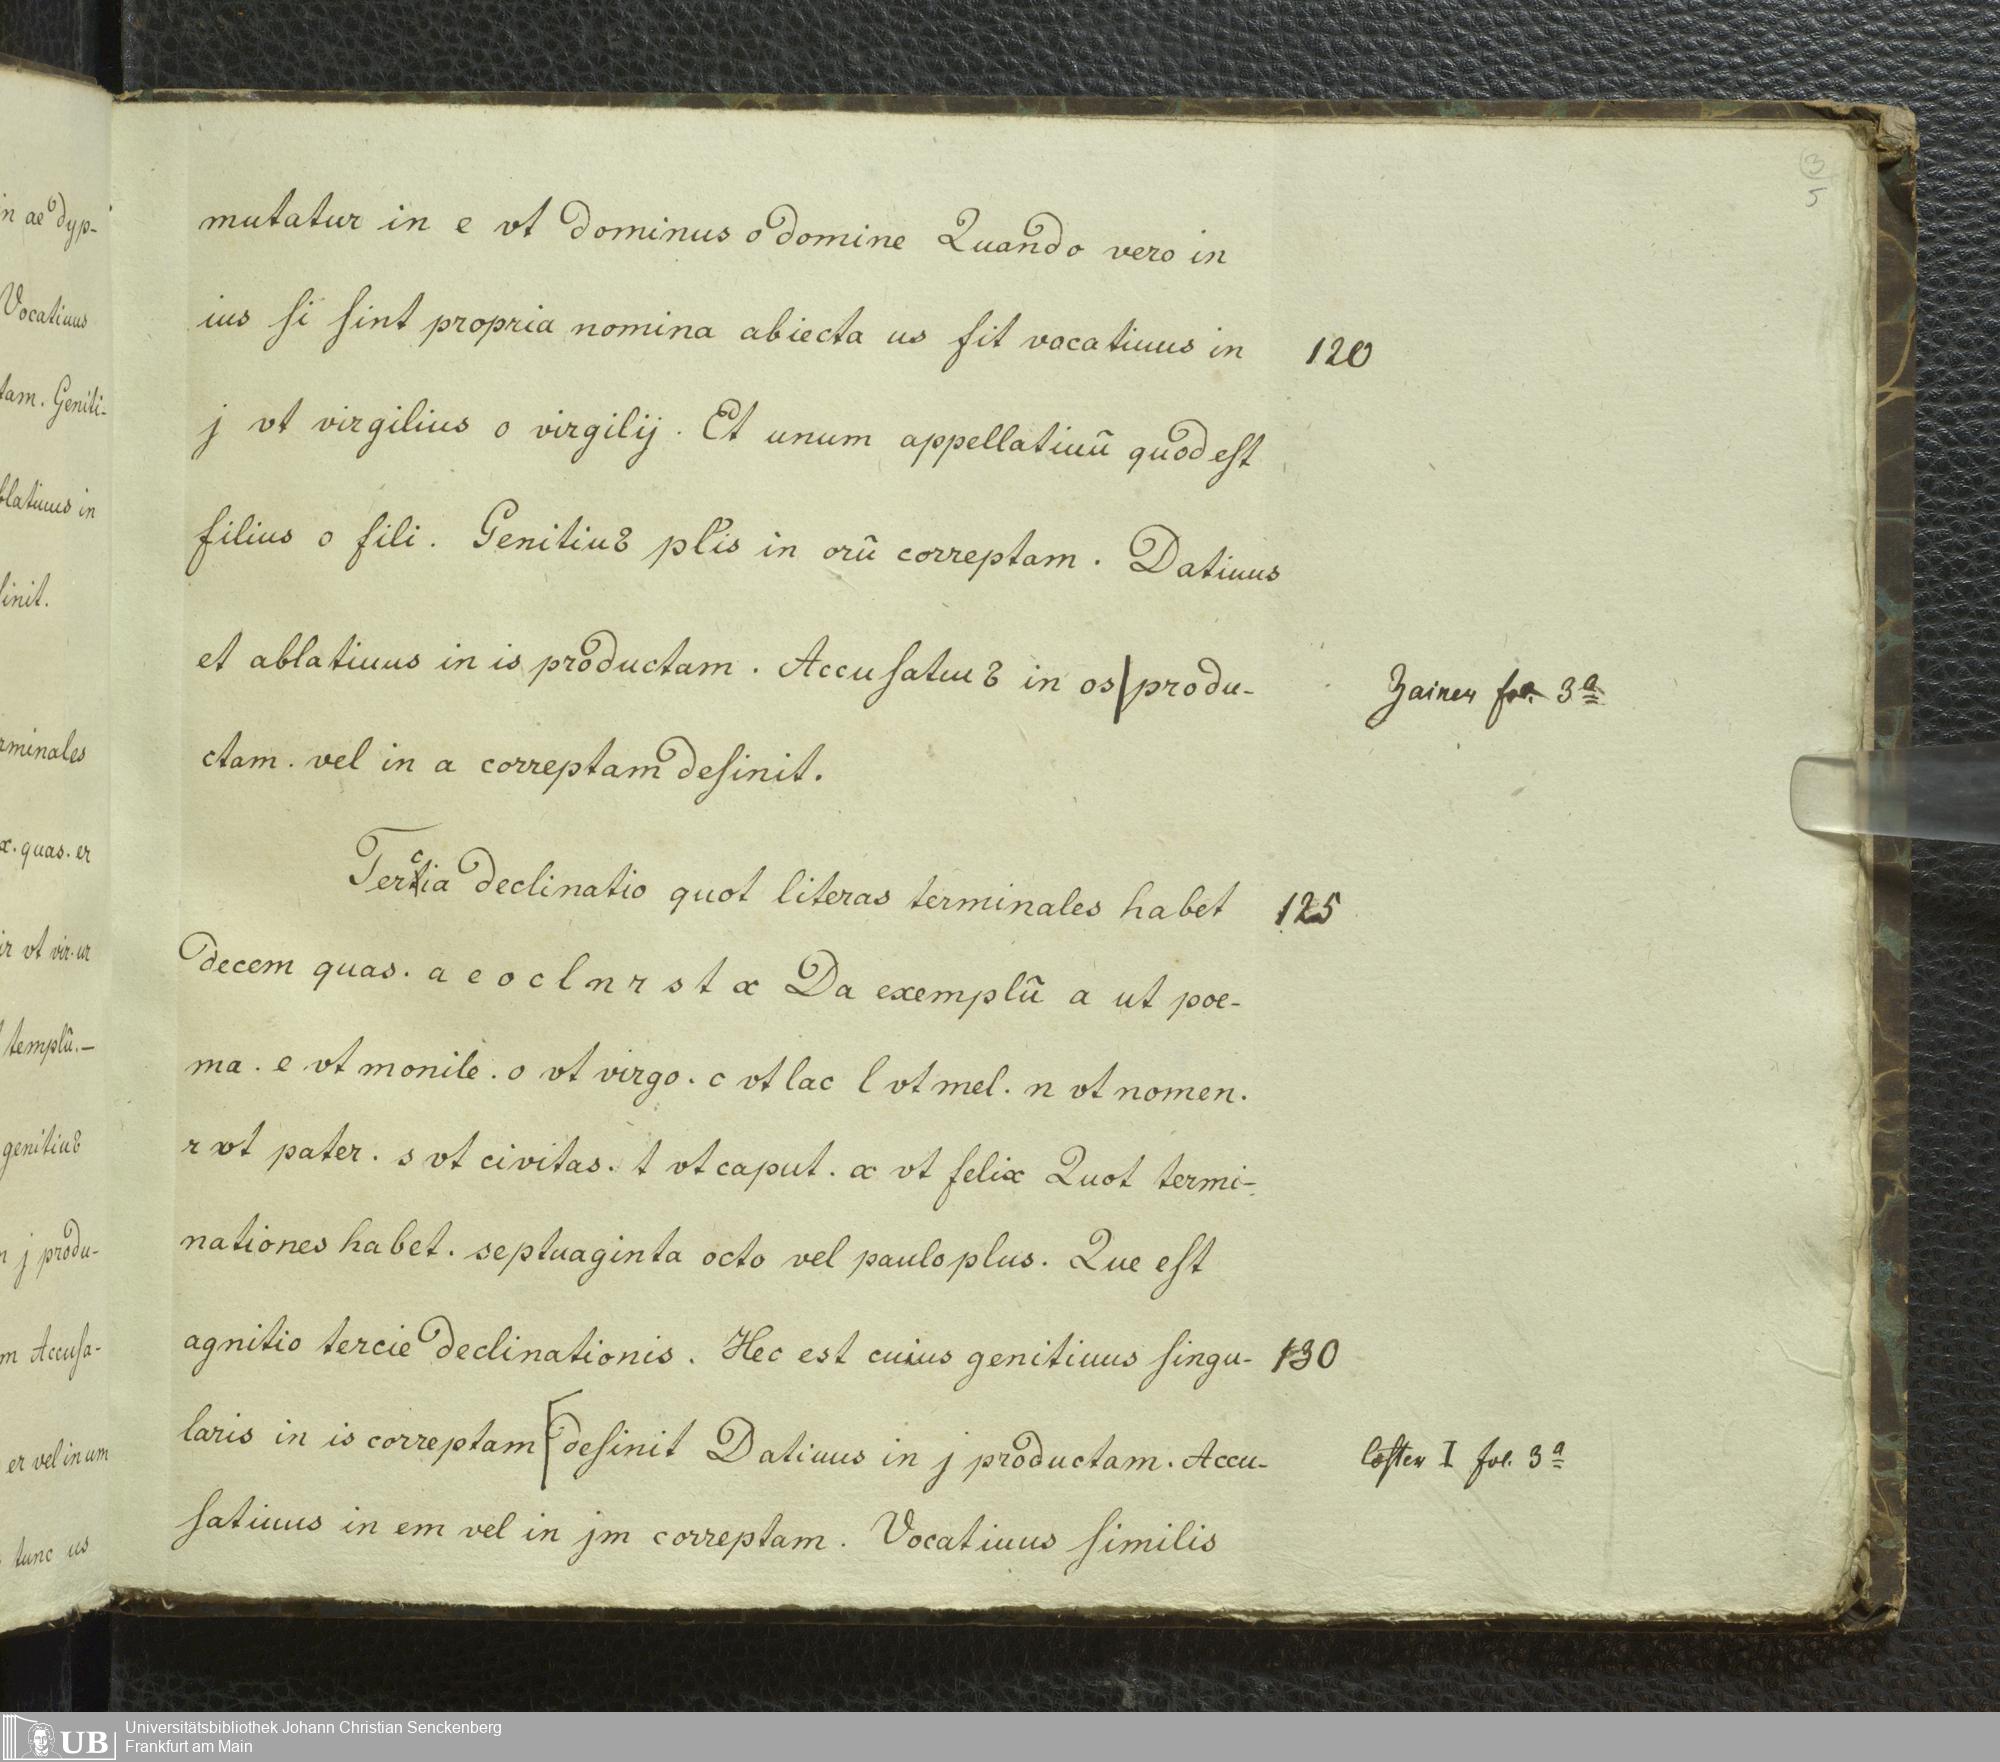 3
5
in ae dyp-
Vocatiuus
tam. Geniti-
blatiuus in
sinit.
rminales
x. quas. er
ir vt vir. ur
templũ.-
genitiuꝫ
n j produ-
m Accusa-
er vel in um
tunc us
mutatur in e vt dominus o domine Quando vero in
ius si sint propria nomina abiecta us fit vocatiuus in 120
j vt virgilius o virgilij. Et unum appellatiuũ quod est
filius o fili. Genitiuꝫ plis in orũ correptam. Datiuus
et ablatiuus in is productam. Accusatiuꝫ in os | produ- Zainer fol. 3a
ctam. vel in a correptam desinit.
Tercia declinatio quot literas terminales habet 125
decem quas. a e o c l n r s t x Da exemplũ a ut poe-
ma. e vt monile. o vt virgo. c vt lac l vt mel. n vt nomen.
r vt pater. s vt civitas. t vt caput. x vt felix Quot termi-
nationes habet. septuaginta octo vel paulo plus. Que est
agnitio tercie declinationis. Hec est cuius genitiuus singu- 130
laris in is correptam [desinit Datiuus in j productam. Accu- Coster I fol. 3a
satiuus in em vel in jm correptam. Vocatiuus similis
UB
Universitätsbibliothek Johann Christian Senckenberg
Frankfurt am Main